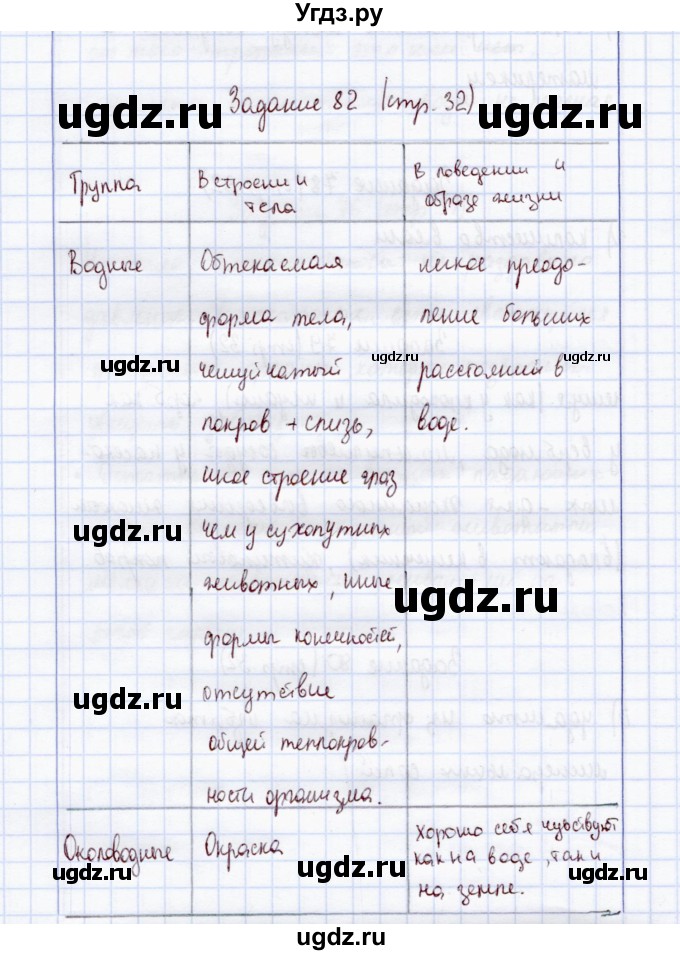 Угдз.ру
Задание 82 (стр. 32)
Группа
В строении тела
В поведении и образе жизни
Водные
Обтекаемая
форма тела,
чешуйчатый
покров + слизь,
иное строение глаз
чем у сухопутных
животных, иные
формы конечностей,
отсутствие
общей теплокров-
ности организма.
легкое преодо-
ление больших
расстояний в
воде.
Околоводные
Окраска
Хорошо себя чувствуют
как на воде, так и
на земле.
ugdz.ru
ugdz.ru
ugdz.ru
ugdz.ru
ugdz.ru
ugdz.ru
ugdz.ru
ugdz.ru
ugdz.ru
ugdz.ru
ugdz.ru
ugdz.ru
ugdz.ru